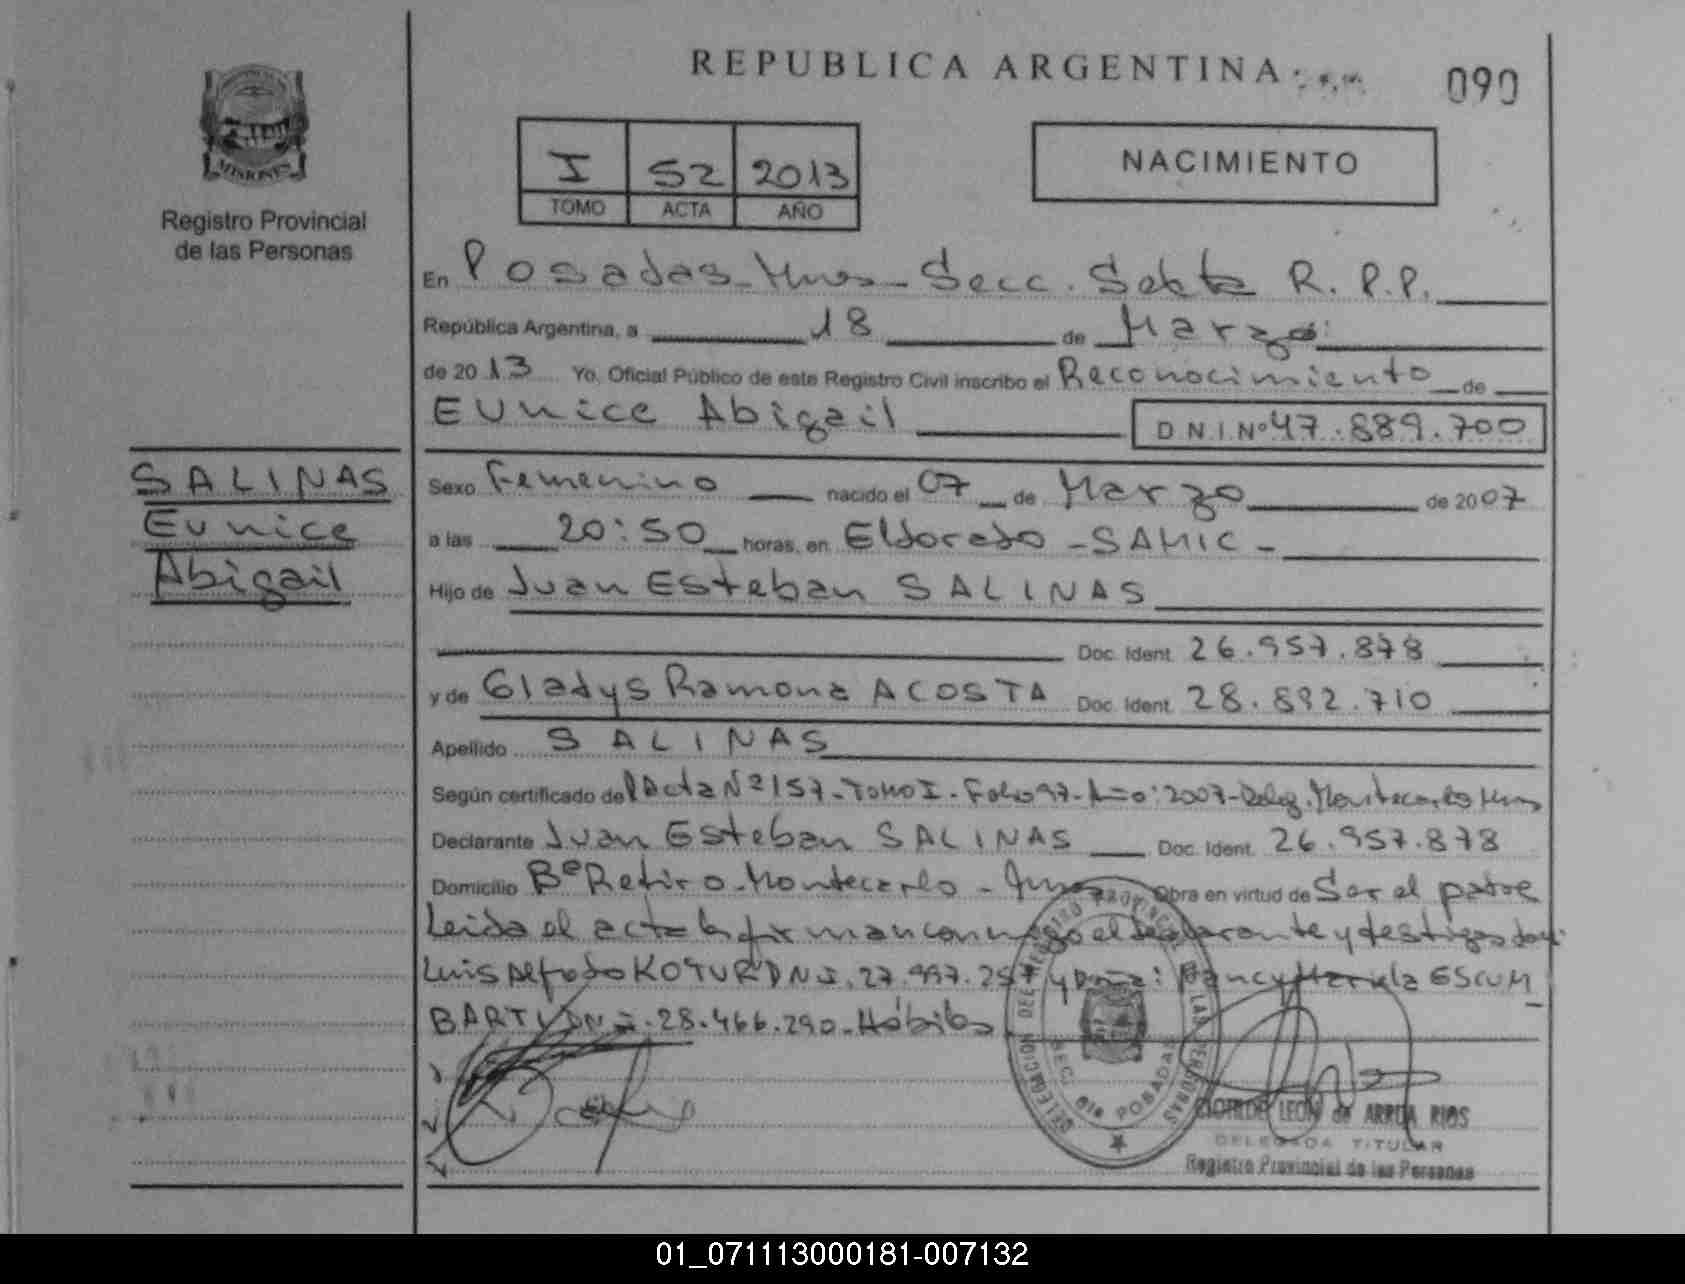 REPUBLICA ARGENTINA
090
MISIONES
Registro Provincial
de las Personas
I 52 2013
TOMO ACTA AÑO
NACIMIENTO
En Posadas - Mnes - Secc. Sexta R.P.P.
República Argentina, a 18 de Marzo
de 2013 Yo, Oficial Público de este Registro Civil inscribo el Reconocimiento de
Eunice Abigail D.N.I. Nº 47.889.700
SALINAS
Eunice
Abigail
Sexo Femenino nacido el 07 de Marzo de 2007
a las 20:50 horas, en Eldorado - SAMIC -
Hijo de Juan Esteban SALINAS
Doc. Ident. 26.957.878
y de Gladys Ramona ACOSTA Doc. Ident. 28.892.710
Apellido SALINAS
Según certificado del Acta Nº 157 - Tomo I - Folio 97 - Año: 2007 - Deleg. Montecarlo Mnes
Declarante Juan Esteban SALINAS Doc. Ident. 26.957.878
Domicilio Bº Retiro - Montecarlo - Mnes Obra en virtud de Ser el padre
Leida el acta la firman conmigo el declarante y testigos
Luis Alfredo KOTUR DNI. 27.997.257 y Doña: Nancy Mariela ESCUM
BARTI DNI. 28.466.290 - Hábiles
DELEGACION DEL REGISTRO PROVINCIAL DE LAS PERSONAS
SEC. 6ta POSADAS
CLOTILDE LEON de ARRUA RIOS
DELEGADA TITULAR
Registro Provincial de las Personas
01_071113000181-007132